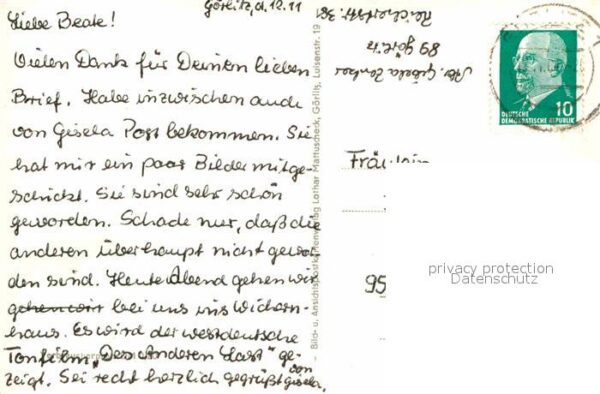 Görlitz, d. 12.11
Liebe Beate!
Vielen Dank für Deinen lieben
Brief. Habe inzwischen auch
von Gisela Post bekommen. Sie
hat mir ein paar Bilder mitge-
schickt. Sie sind sehr schön
geworden. Schade nur, daß die
anderen überhaupt nicht gewor
den sind. Heute Abend gehen wir
gehen wir bei uns ins Wichern-
haus. Es wird der westdeutsche
Tonfilm „Des Anderen Last" ge-
zeigt. Sei recht herzlich gegrüßt von
Gisela.
Bild- u. Ansichtspostkartenverlag Lothar Mattuscheck, Görlitz, Luisenstr. 19
Abs. Gisela
89 Görlitz
Reichertstr.
10
DEUTSCHE
DEMOKRATISCHE REPUBLIK
Fräulein
95
privacy protection
Datenschutz